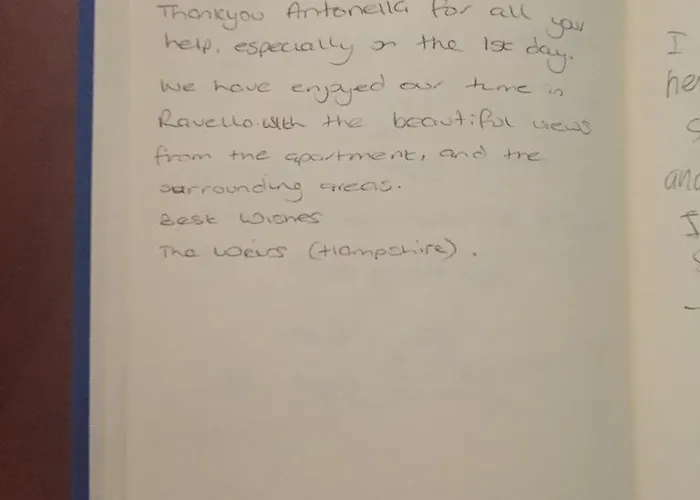 Thankyou Antonella for all your
help, especially on the 1st day.
We have enjoyed our time in
Ravello with the beautiful views
from the apartment, and the
surrounding areas.
Best Wishes
The Weirs (Hampshire).
I
and